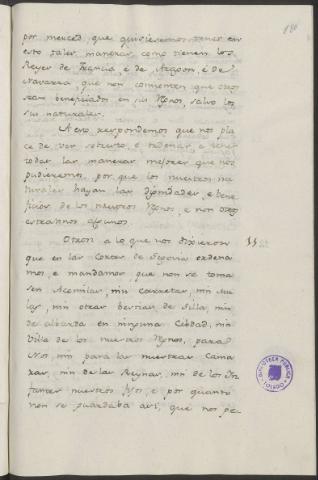 180
por merced, que quisieremos tener en
esto tales maneras, como tienen los
Reyes de Francia, é de Aragon, é de
Navarra, que non consienten que otros
sean beneficiados en sus Rynos, salvo los
sus naturales.
A esto respondemos que nos pla
ce de ver sobre ello, é ordenar, é tener
todas las maneras mejores que nos
pudieremos, por que los nuestros na
turales hayan las Dignidades, é bene
ficios de los nuestros Rynos, é non otros
estraños algunos.
Otrosi a lo que nos dixieron
que en las Cortes de Segovia ordena
mos, é mandamos que non se toma
sen Acemilas, nin carretas, nin mu
las, nin otras bestias de silla, nin
de albarda en ninguna Cibdad, nin
Villa de los nuestros Rynos, para
Nos, nin para las nuestras Cama
ras, nin de las Reynas, nin de los In
fantes nuestros fijos, é por quanto
non se guardaba asi, que nos pe
11
BIBLIOTECA PUBLICA
TOLEDO